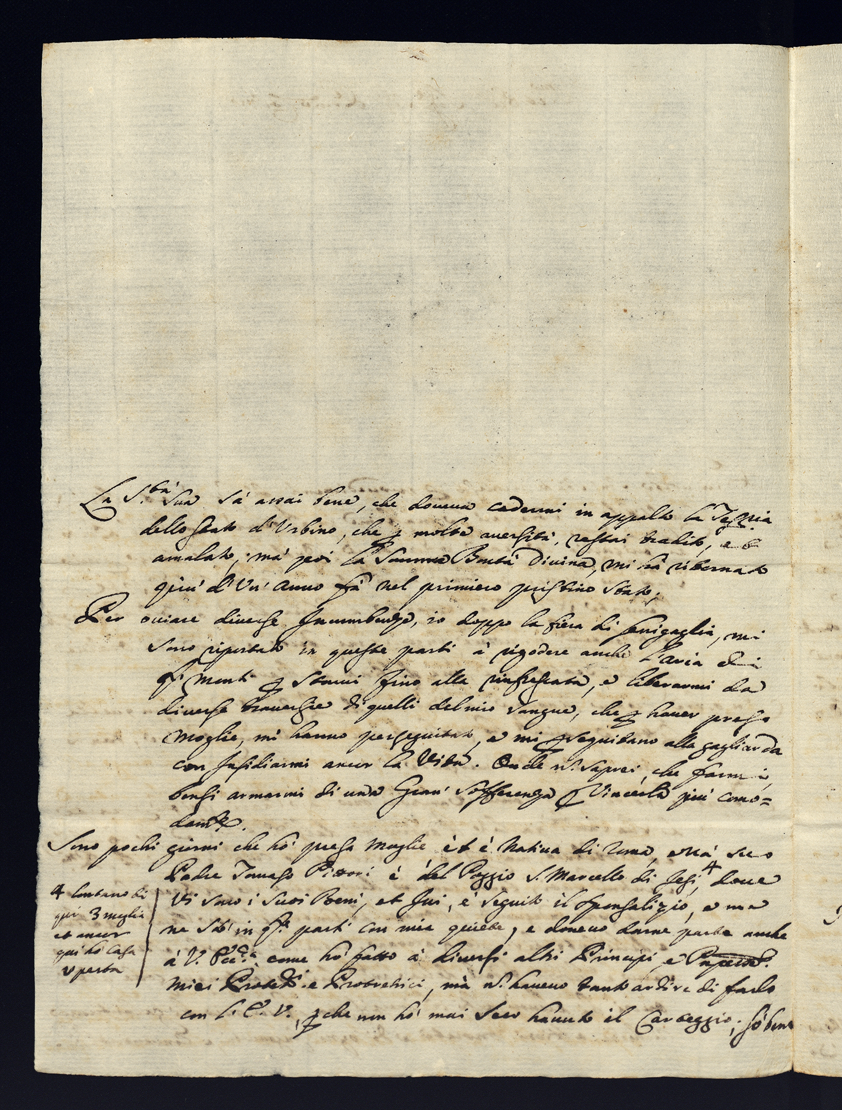 La S.tà Sua sà assai bene, che doveva cedermi in appalto la
dello Stato d'Urbino, che p molte aversità, restai tradito, e
amalato, mà poi la Somma Bontà Divina, mi hà ritornato
più d'Un' Anno fà nel primiero pristino Stato,
Per ouiare diverse Incumbenze, io doppo la fiera di Senigaglia, mi
sono riportato in queste parti à rigodere anche l'aria di
q.i Monti p Starvi fino alla rinfrescata, e liberarmi da
diverse traversie di quelli del mio Sangue, che p haver preso
Moglie, mi hanno perseguitato, e mi perseguitano alla gagliarda
con Insidiarmi ancor la Vita. Onde n. saprei, che farmi,
bensi armarmi di una Gran' Sofferenza p Vincerla più como=
dam.te.
Sono pochi giorni che hò preso Moglie et è Nativa di Roma, mà suo
Padre Tomaso Pittori è del Poggio S. Marcello di Jesi, 4 dove
Vi sono i Suoi Beni, et Ivi, è seguito il Sponsalizio, e me
ne stò in q.te parti con mia quiete, e dovevo darne parte anche
à V. Ecc.a come hò fatto à diversi altri Principi, e
miei e, mà n. havevo tant'ardire di farlo
con l'E. V., p che non hò mai Seco havuto il Carteggio; sò bene
4 lontano di
qui 3 miglia
et ancor
qui hò Casa
aperta